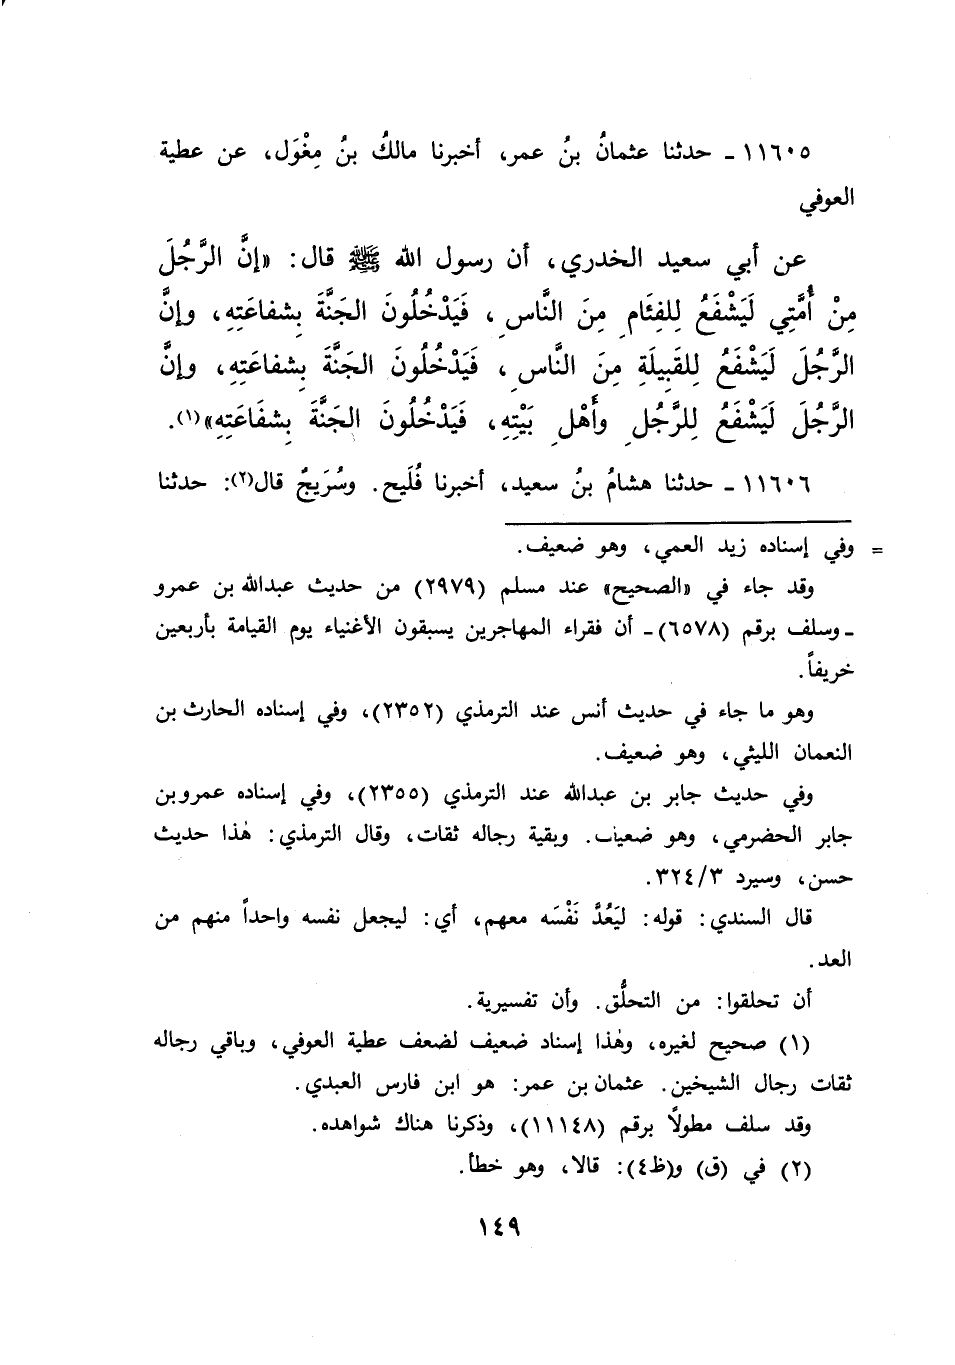 ١١٦٠٥ ـ حدثنا عثمانُ بنُ عمر، أخبرنا مالكُ بنُ مِغْوَل، عن عطية
العوفي
عن أبي سعيد الخدري، أن رسول الله ﷺ قال: «إنَّ الرَّجُلَ
مِنْ أُمَّتِي لَيَشْفَعُ لِلفِئَامِ مِنَ النَّاسِ، فَيَدْخُلُونَ الجَنَّةَ بِشفاعَتِهِ، وإنَّ
الرَّجُلَ لَيَشْفَعُ لِلقَبِيلَةِ مِنَ النَّاسِ، فَيَدْخُلُونَ الجَنَّةَ بِشفاعَتِهِ، وإنَّ
الرَّجُلَ لَيَشْفَعُ لِلرَّجُلِ وأَهْلِ بَيْتِهِ، فَيَدْخُلُونَ الجَنَّةَ بِشفَاعَتِهِ»(١).
١١٦٠٦ ـ حدثنا هشامُ بنُ سعيد، أخبرنا فُلَيح. وسُرَيجٌ قال(٢): حدثنا
= وفي إسناده زيد العمي، وهو ضعيف.
وقد جاء في «الصحيح» عند مسلم (٢٩٧٩) من حديث عبدالله بن عمرو
ـ وسلف برقم (٦٥٧٨) ـ أن فقراء المهاجرين يسبقون الأغنياء يوم القيامة بأربعين
خريفاً.
وهو ما جاء في حديث أنس عند الترمذي (٢٣٥٢)، وفي إسناده الحارث بن
النعمان الليثي، وهو ضعيف.
وفي حديث جابر بن عبدالله عند الترمذي (٢٣٥٥)، وفي إسناده عمرو بن
جابر الحضرمي، وهو ضعيف. وبقية رجاله ثقات، وقال الترمذي: هٰذا حديث
حسن، وسيرد ٣٢٤/٣.
قال السندي: قوله: ليَعُدَّ نَفْسَه معهم، أي: ليجعل نفسه واحداً منهم من
العد.
أن تحلقوا: من التحلُّق. وأن تفسيرية.
(١) صحيح لغيره، وهٰذا إسناد ضعيف لضعف عطية العوفي، وباقي رجاله
ثقات رجال الشيخين. عثمان بن عمر: هو ابن فارس العبدي.
وقد سلف مطولاً برقم (١١١٤٨)، وذكرنا هناك شواهده.
(٢) في (ق) و(ظ٤): قالا، وهو خطأ.
١٤٩